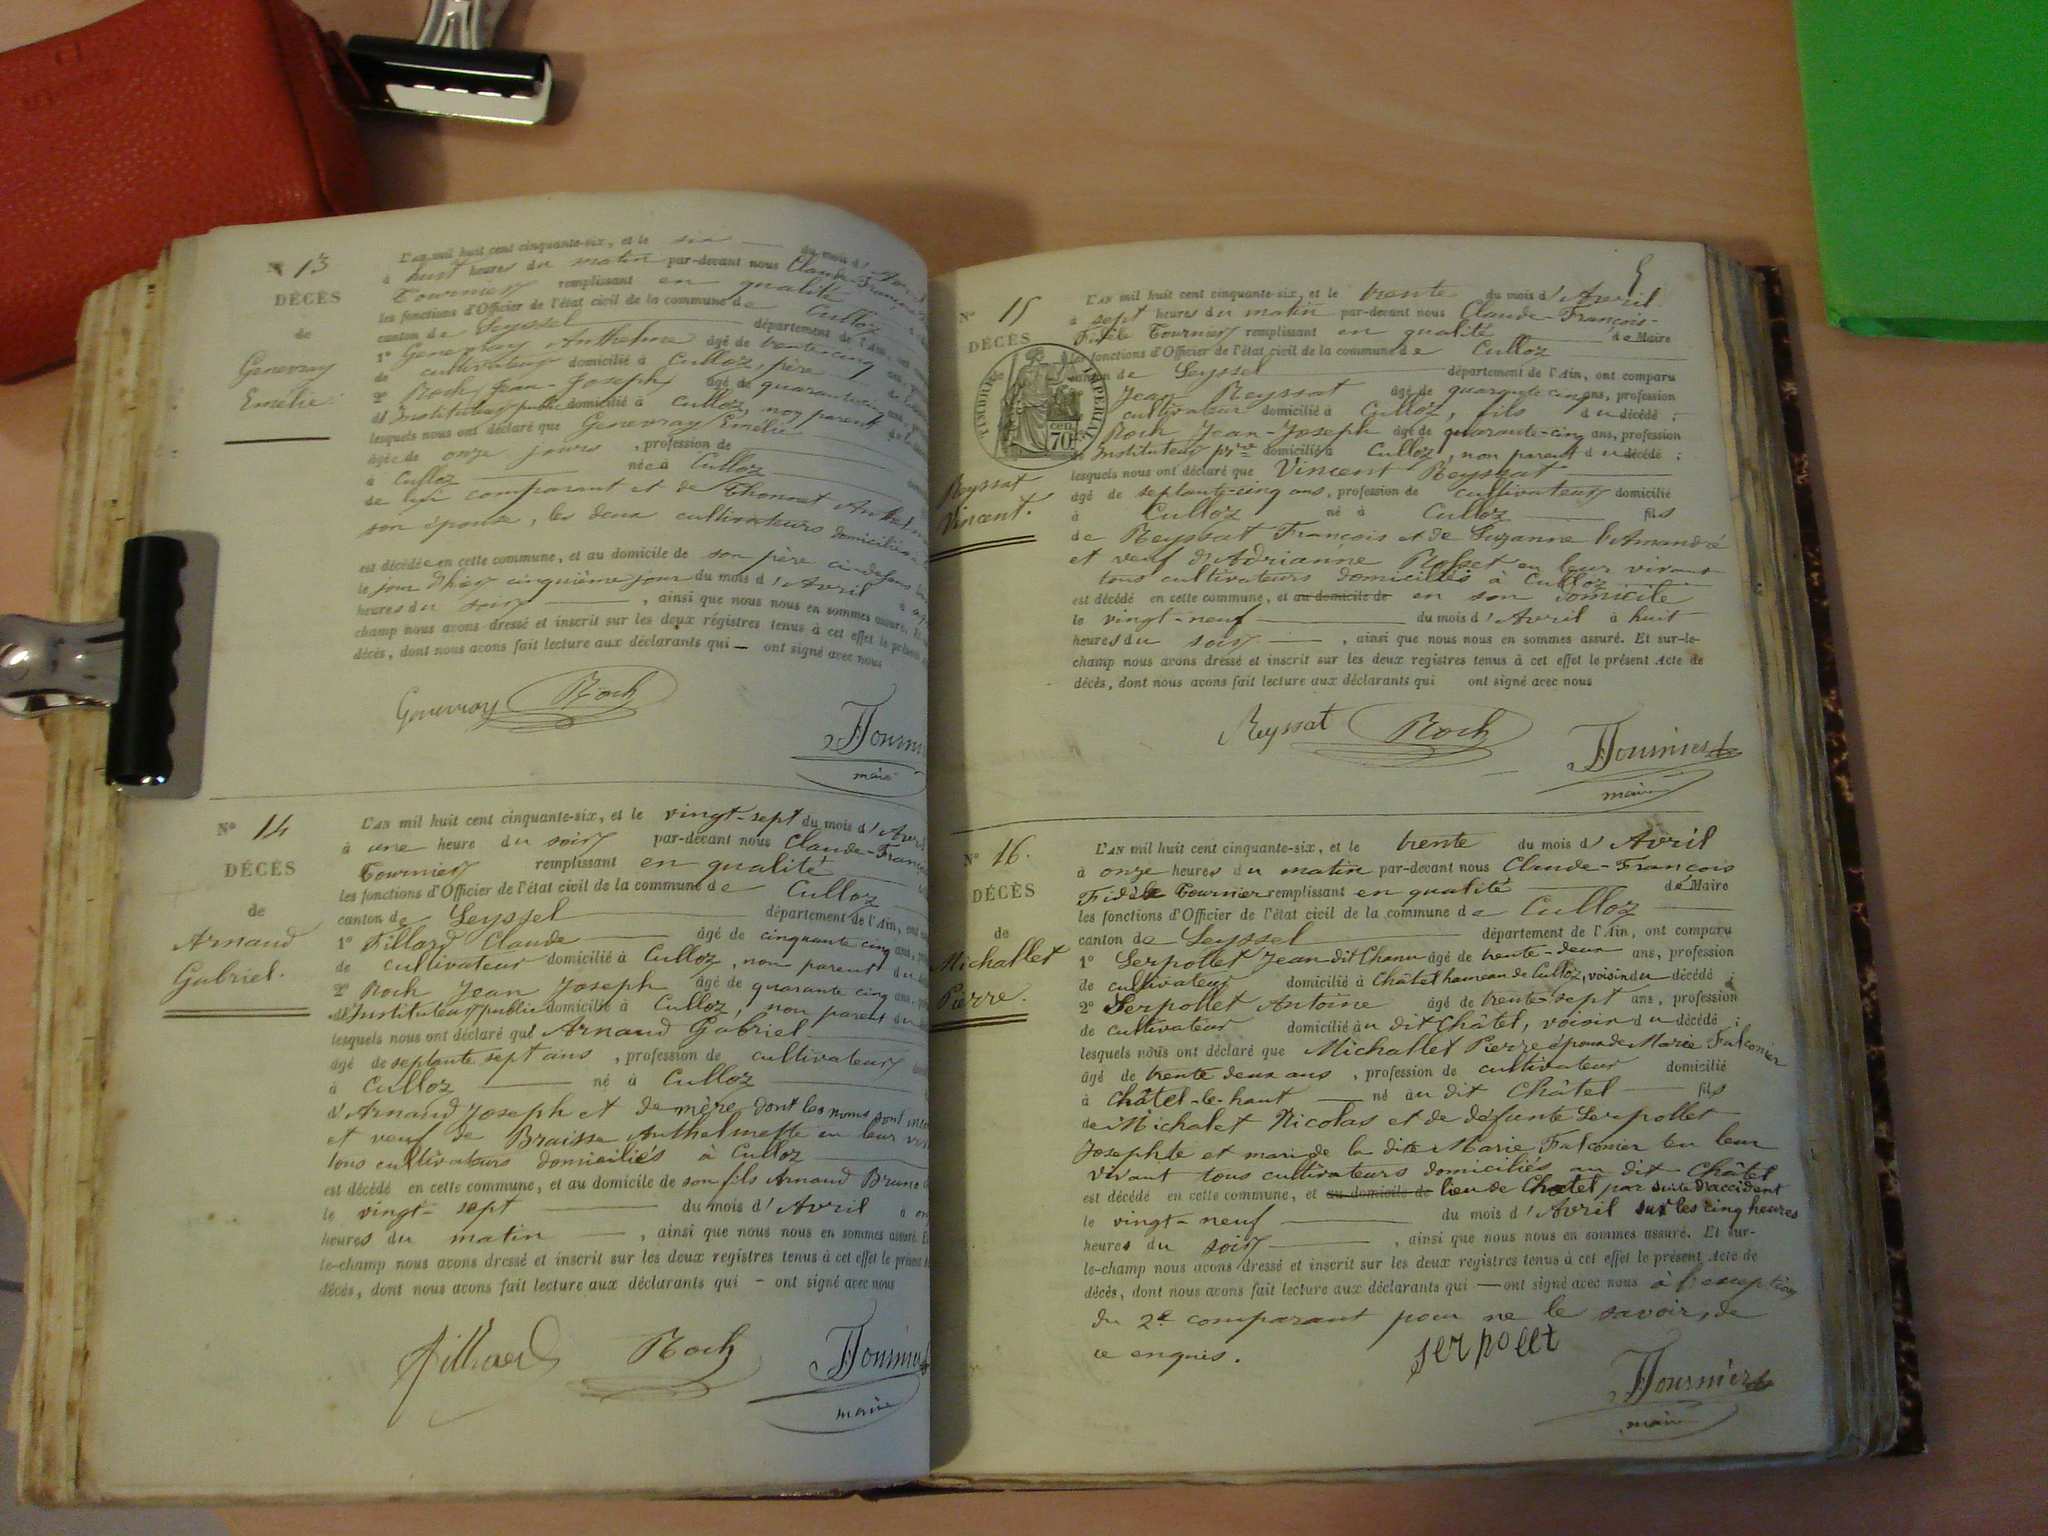 N° 13
DÉCÈS
de
Genevray
Emélie
L'AN mil huit cent cinquante-six, et le six du mois d'
à huit heures du matin par-devant nous Claude-François
Tournier remplissant en qualité
les fonctions d'Officier de l'état civil de la commune de Culloz
canton de Seyssel département de l'Ain, ont
1° Genevray Anthelme âgé de trente-cinq
de cultivateur domicilié à Culloz, père
2° Roch Jean-Joseph âgé de quarante-cinq ans,
d'Instituteur public domicilié à Culloz, non parent
lesquels nous ont déclaré que Genevray Emélie
âgée de onze jours, profession de
à Culloz née à Culloz
de lui comparant et de Thonnet
son épouse, les deux cultivateurs domiciliés
est décédée en cette commune, et au domicile de son père
le jour d'hier cinquième jour du mois d'Avril à
heures du soir, ainsi que nous nous en sommes assuré. Et
champ nous avons dressé et inscrit sur les deux régistres tenus à cet effet le
décès, dont nous avons fait lecture aux déclarants qui ont signé avec nous
Genevray Roch
Tournier
maire
N° 14
DÉCÈS
de
Arnaud
Gabriel.
L'AN mil huit cent cinquante-six, et le vingt-sept du mois d'Avril
à une heure du soir par-devant nous Claude-François
Tournier remplissant en qualité
les fonctions d'Officier de l'état civil de la commune de Culloz
canton de Seyssel département de l'Ain, ont
1° Fillard Claude âgé de cinquante cinq ans,
de cultivateur domicilié à Culloz, non parent du
2° Roch Jean Joseph âgé de quarante cinq ans,
d'Instituteur public domicilié à Culloz, non parent du
lesquels nous ont déclaré que Arnaud Gabriel
âgé de septante sept ans, profession de cultivateur
à Culloz né à Culloz
d'Arnaud Joseph et de mère dont les noms sont
et veuf de Braisse Anthelmette en leur
tous cultivateurs domiciliés à Culloz
est décédé en cette commune, et au domicile de son fils Arnaud Bruno
le vingt-sept du mois d'Avril à
heures du matin, ainsi que nous nous en sommes assuré. Et
le-champ nous avons dressé et inscrit sur les deux registres tenus à cet effet le présent
décès, dont nous avons fait lecture aux déclarants qui - ont signé avec nous
Fillard Roch Tournier
maire
N° 15
DÉCÈS
TIMBRE IMPERIAL
70 cen
Reyssat
Vincent.
L'AN mil huit cent cinquante-six, et le trente du mois d'Avril
à sept heures du matin par-devant nous Claude-François-
Fidèle Tournier remplissant en qualité de Maire
les fonctions d'Officier de l'état civil de la commune de Culloz
canton de Seyssel département de l'Ain, ont comparu
Jean Reyssat âgé de quarante cinq ans, profession
cultivateur domicilié à Culloz, fils du décédé;
Roch Jean-Joseph âgé de quarante-cinq ans, profession
Instituteur domicilié à Culloz, non parent du décédé;
lesquels nous ont déclaré que Vincent Reyssat
âgé de septante-cinq ans, profession de cultivateur domicilié
à Culloz né à Culloz fils
de Reyssat François et de Suzanne
et veuf d'Adrianne Rosset en leur vivant
tous cultivateurs domiciliés à Culloz
est décédé en cette commune, et au domicile de en son domicile
le vingt-neuf du mois d'Avril à huit
heures du soir, ainsi que nous nous en sommes assuré. Et sur-le-
champ nous avons dressé et inscrit sur les deux registres tenus à cet effet le présent Acte de
décès, dont nous avons fait lecture aux déclarants qui ont signé avec nous
Reyssat Roch Tournier
maire
N° 16.
DÉCÈS
de
Michallet
Pierre.
L'AN mil huit cent cinquante-six, et le trente du mois d'Avril
à onze heures du matin par-devant nous Claude-François
Fidèle Tournier remplissant en qualité de Maire
les fonctions d'Officier de l'état civil de la commune de Culloz
canton de Seyssel département de l'Ain, ont comparu
1° Serpollet Jean dit Chanu âgé de trente-deux ans, profession
de cultivateur domicilié à Châtel hameau de Culloz, voisin du décédé;
2° Serpollet Antoine âgé de trente-sept ans, profession
de cultivateur domicilié au dit Châtel, voisin du décédé;
lesquels nous ont déclaré que Michallet Pierre époux de Marie Falconier
âgé de trente deux ans, profession de cultivateur domicilié
à Châtel-le-haut né au dit Châtel fils
de Michalet Nicolas et de défunte Serpollet
Josephte et mari de la dite Marie Falconier en leur
vivant tous cultivateurs domiciliés au dit Châtel
est décédé en cette commune, et au domicile de lieu de Châtel par suite d'accident
le vingt-neuf du mois d'Avril sur les cinq heures
heures du soir, ainsi que nous nous en sommes assuré. Et sur-
le-champ nous avons dressé et inscrit sur les deux registres tenus à cet effet le présent Acte de
décès, dont nous avons fait lecture aux déclarants qui — ont signé avec nous à l'exception
du 2e comparant pour ne le savoir, de
ce enquis.
serpollet
Tournier
maire